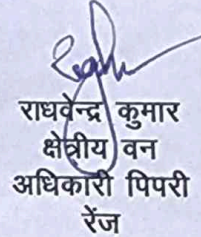 राघवेन्द्र कुमार
क्षेत्रीय वन
अधिकारी पिपरी
रेंज